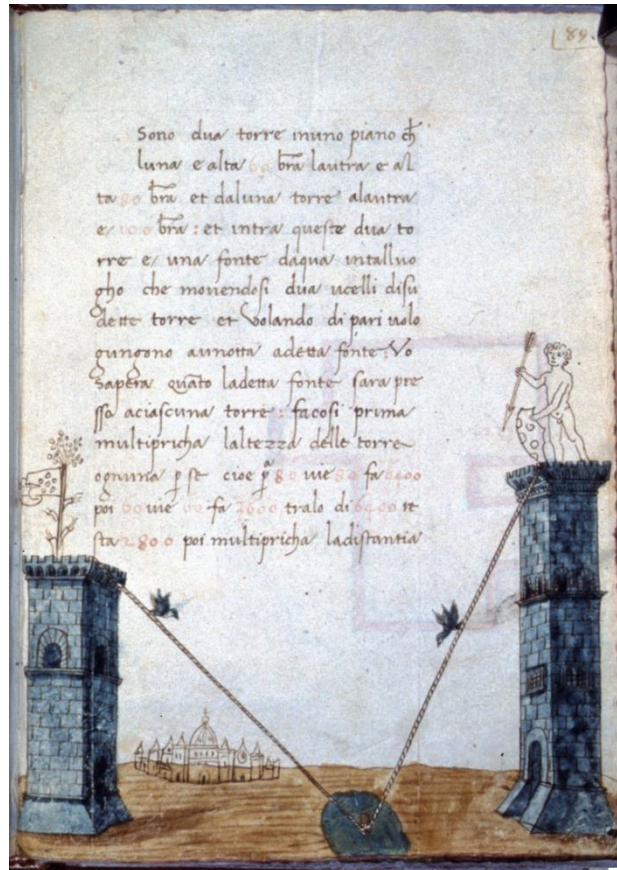 89
Sono dua torre inuno piano ch̄
luna e alta 60 br̄a lautra e al
ta 80 br̄a et daluna torre alautra
e 100 br̄a : et intra queste dua to
rre e una fonte daqua intalluo
gho che movendosi dua ucelli disu
dette torre et volando di pari uolo
gungono aunotta adetta fonte : Vo
sapera quāto ladetta fonte sara pre
sso aciascuna torre : facosi prima
multipricha laltezza delle torre
ognuna p se cioe p 80 uie 80 fa 6400
poi 60 uie 60 fa 3600 tralo di 6400 re
sta 2800 poi multipricha ladistantia